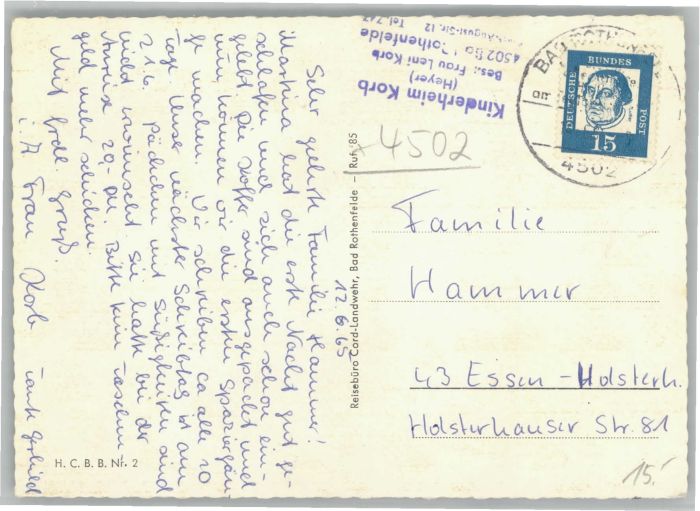 Kinderheim Korb
(Heyer)
Bes.: Frau Leni Korb
4502 Bad Rothenfelde
August-Str. 12
Tel. 747
BAD ROTHENFELDE
4502
DEUTSCHE
BUNDES
POST
15
4502
12.6.65
Sehr geehrte Familie Hammer!
Martina hat die erste Nacht gut ge-
schlafen und sich auch schon ein-
gelebt. Die Koffer sind ausgepackt und
nun können wir die ersten Spaziergän-
ge machen. Wir schreiben ca alle 10
Tage. Unser nächster Schreibtag ist am
21.6. Päckchen mit Süßigkeiten sind
nicht erwünscht. Sie hatte bei der
Anreise 20.- DM. Bitte kein Taschen
geld mehr schicken.
Mit frdl. Gruß.
i. A. Frau Korb
Tante
Familie
Hammer
43 Essen - Holsterh.
Holsterhauser Str. 81
Reisebüro Cord-Landwehr, Bad Rothenfelde – Ruf: 85
H. C. B. B. Nr. 2
15.-